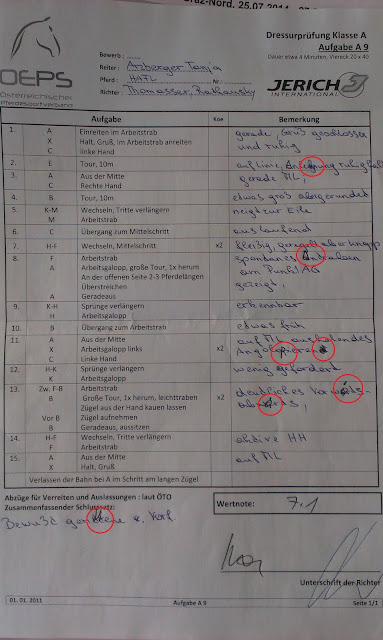 raz-Nord, 25.07.2014
OEPS
Österreichischer
Pferdesportverband
Dressurprüfung Klasse A
Aufgabe A 9
Dauer etwa 4 Minuten, Viereck 20 x 40
Bewerb :
Reiter : Arzberger Tanja
Pferd : HAFL Nr.:
Richter : Thomasser,
JERICH
INTERNATIONAL
Aufgabe Koe Bemerkung
1. A Einreiten im Arbeitstrab gerade, Gruß geschlossen
X Halt, Gruß, im Arbeitstrab anreiten und ruhig
C linke Hand
2. E Tour, 10m auf Linie, ruhig
3. A Aus der Mitte gerade ML,
C Rechte Hand
4. B Tour, 10m etwas groß abgerundet
5. K-M Wechseln, Tritte verlängern neigt zur Eile
M Arbeitstrab
6. C Übergang zum Mittelschritt auslaufend
7. H-F Wechseln, Mittelschritt x2 fleißig,
8. F Arbeitstrab spontanes
A Arbeitsgalopp, große Tour, 1x herum am Punkt AG
An der offenen Seite 2-3 Pferdelängen gezeigt,
Überstreichen
A Geradeaus
9. K-H Sprünge verlängern erkennbar
H Arbeitsgalopp
10. B Übergang zum Arbeitstrab etwas früh
11. A Aus der Mitte auf ML
X Arbeitsgalopp links x2
C Linke Hand
12. H-K Sprünge verlängern wenig gefördert
K Arbeitsgalopp
13. Zw. F-B Arbeitstrab deutliches Vorwärts-
B Große Tour, 1x herum, leichttraben x2 abwärts,
Zügel aus der Hand kauen lassen
Vor B Zügel aufnehmen
B Geradeaus, aussitzen
14. H-F Wechseln, Tritte verlängern aktive HH
F Arbeitstrab
15. A Aus der Mitte auf ML
X Halt, Gruß
Verlassen der Bahn bei A im Schritt am langen Zügel
Abzüge für Verreiten und Auslassungen : laut ÖTO
Zusammenfassender Schlusssatz:
Wertnote: 7,1
Unterschrift der Richter
01. 01. 2011 Aufgabe A 9 Seite 1/1